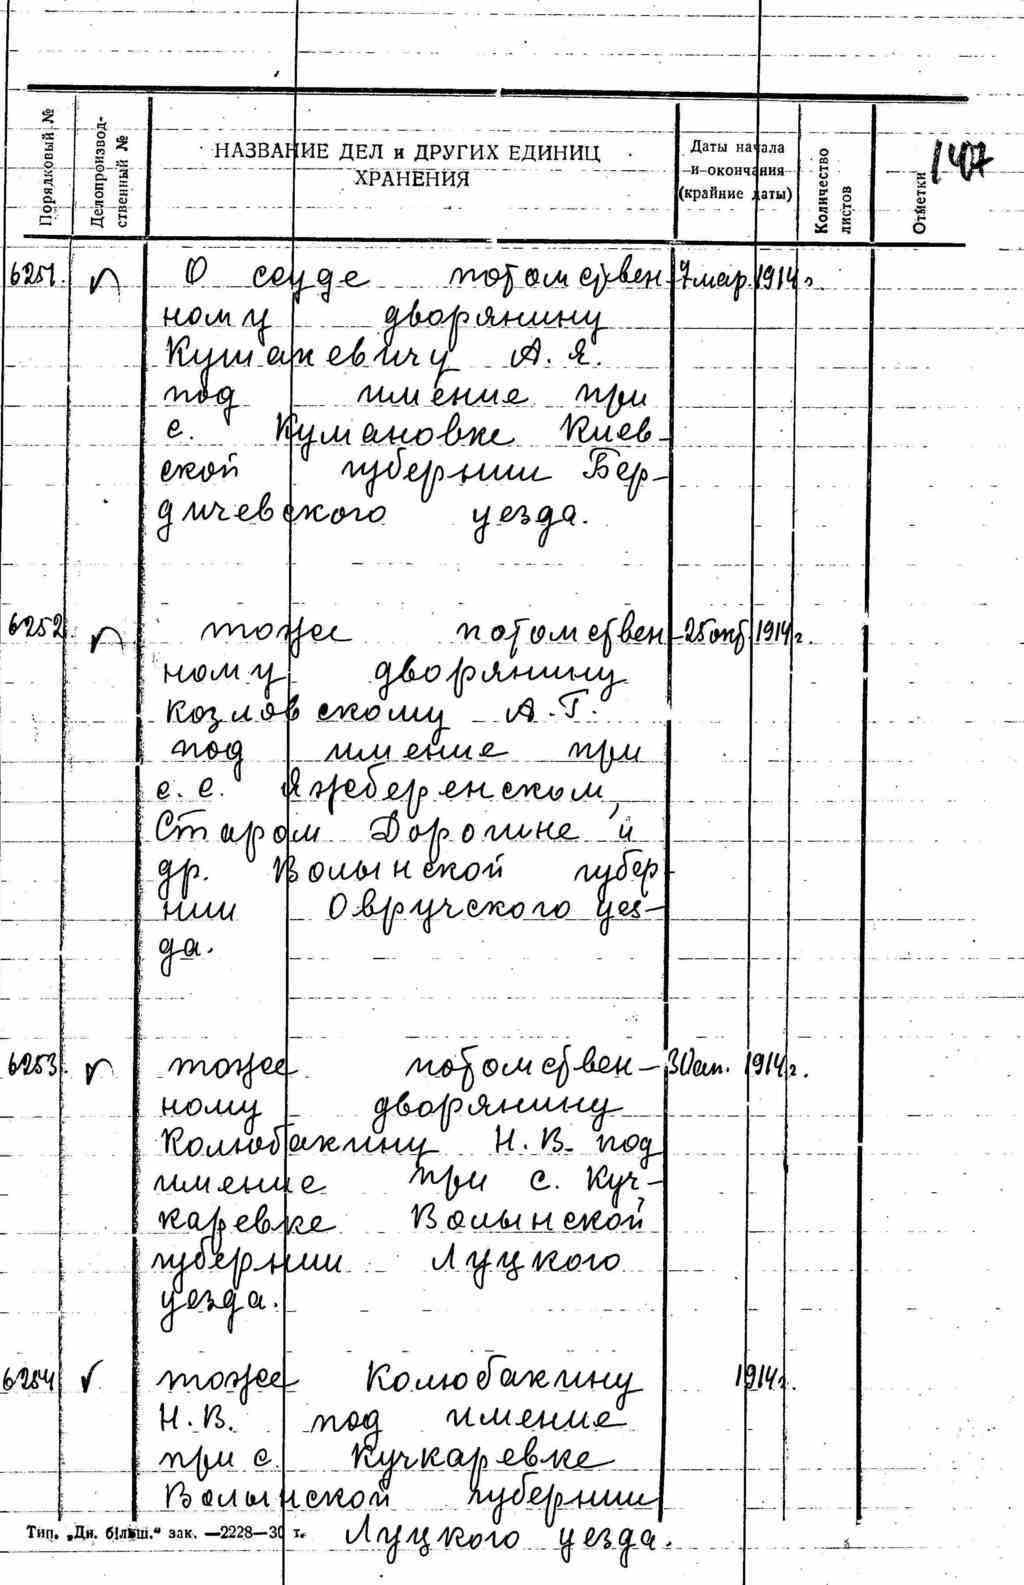 147
Порядковый №
Делопроизвод-
ственный №
НАЗВАНИЕ ДЕЛ и ДРУГИХ ЕДИНИЦ
ХРАНЕНИЯ
Даты начала
и окончания
(крайние даты)
Количество
листов
Отметки
6251. О ссуде потомствен 7 мар. 1914 г.
ному дворянину
Кушакевичу А. Я.
под имение при
с. Кумановке Киев-
ской губернии Бер-
дичевского уезда.
6252. тоже потомствен- 25 окт 1914 г.
ному дворянину
Козловскому А. Г.
под имение при
с. с. Яжберенском,
Старом Дорогине и
др. Волынской губер
нии Овручского уез-
да.
6253. тоже потомствен- 30 сент. 1914 г.
ному дворянину
Колюбакину Н. В. под
имение при с. Куч-
каревке Волынской
губернии Луцкого
уезда.
6254 тоже Колюбакину 1914 г.
Н. В. под имение
при с. Кучкаревке
Волынской губернии
Луцкого уезда.
Тип. „Дн. більш.“ зак. —2228—30 т.